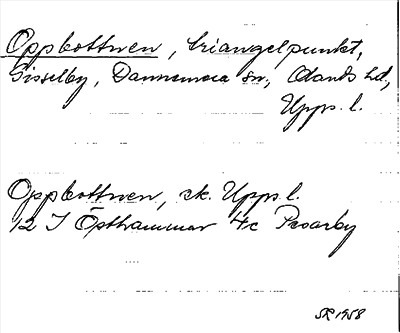 Oppbottnen, triangelpunkt,
Gisselby, Dannemora sn, Olands hd,
Upps. l.
Oppbottnen, ek. Upps l.
12 I Östhammar 4c Persarby
SR 1958